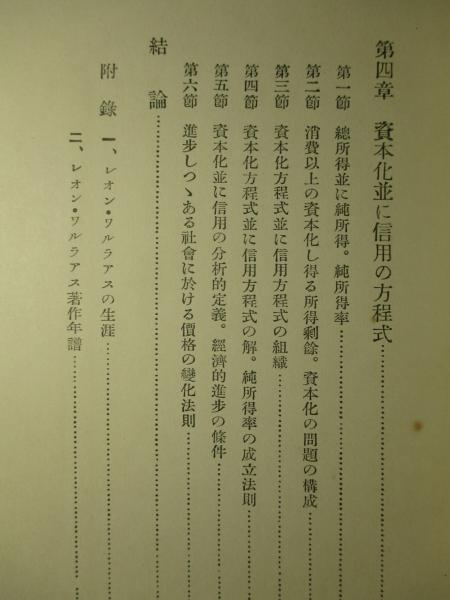 第四章 資本化並に信用の方程式
第一節 總所得並に純所得。純所得率
第二節 消費以上の資本化し得る所得剩餘。資本化の問題の構成
第三節 資本化方程式並に信用方程式の組織
第四節 資本化方程式並に信用方程式の解。純所得率の成立法則
第五節 資本化並に信用の分析的定義。經濟的進步の條件
第六節 進步しつゝある社會に於ける價格の變化法則
結論
附錄 一、レオン・ワルラアスの生涯
二、レオン・ワルラアス著作年譜